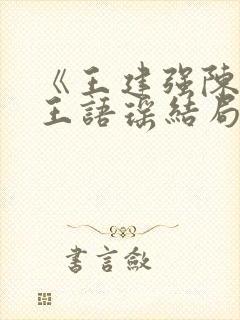 《王建强陈
王語瑶結局
書言敘